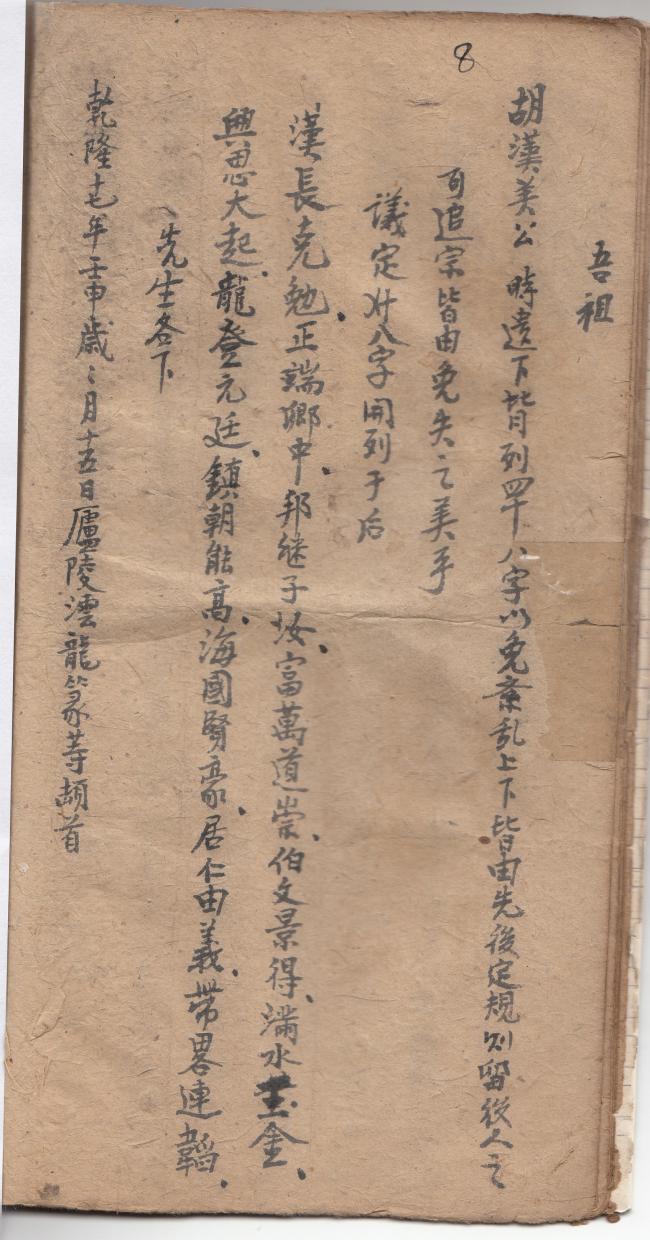 8
吾祖
胡漢美公 時遺下皆列四十八字以免紊乱上下皆由先後定規则留後人之
可追宗皆由免失之美乎
議定廾八字開列于后
漢長克勉、正端鄉中、邦継子汝、富萬道崇、伯文景得、滿水金、
興思大起、龍登元廷、鎮朝能高、海國賢豪、居仁由義、帯畧連韜、
先生各下
乾隆十七年壬申歲二月十五日廬陵澐龍篆等頓首